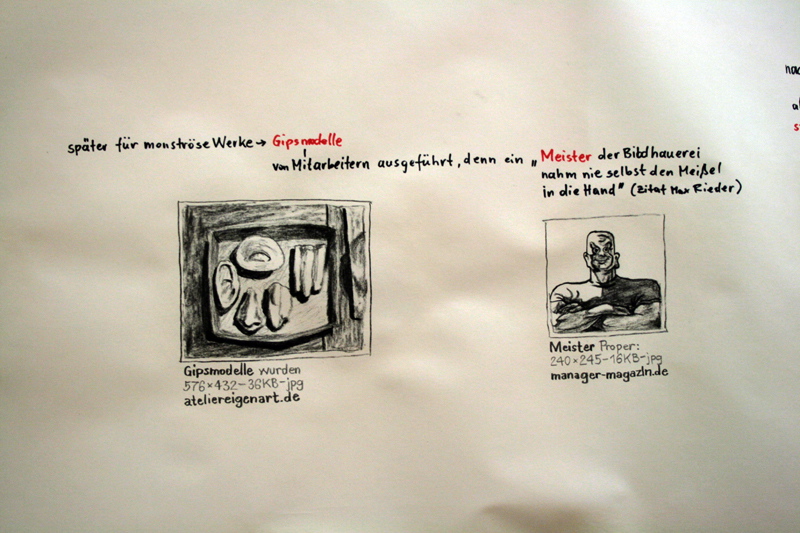 später für monströse Werke → Gipsmodelle
von Mitarbeitern ausgeführt, denn ein „Meister der Bildhauerei
nahm nie selbst den Meißel
in die Hand" (Zitat Max Rieder)
Gipsmodelle wurden
576×432-36KB-jpg
ateliereigenart.de
Meister Proper:
240×245-16KB-jpg
manager-magazin.de